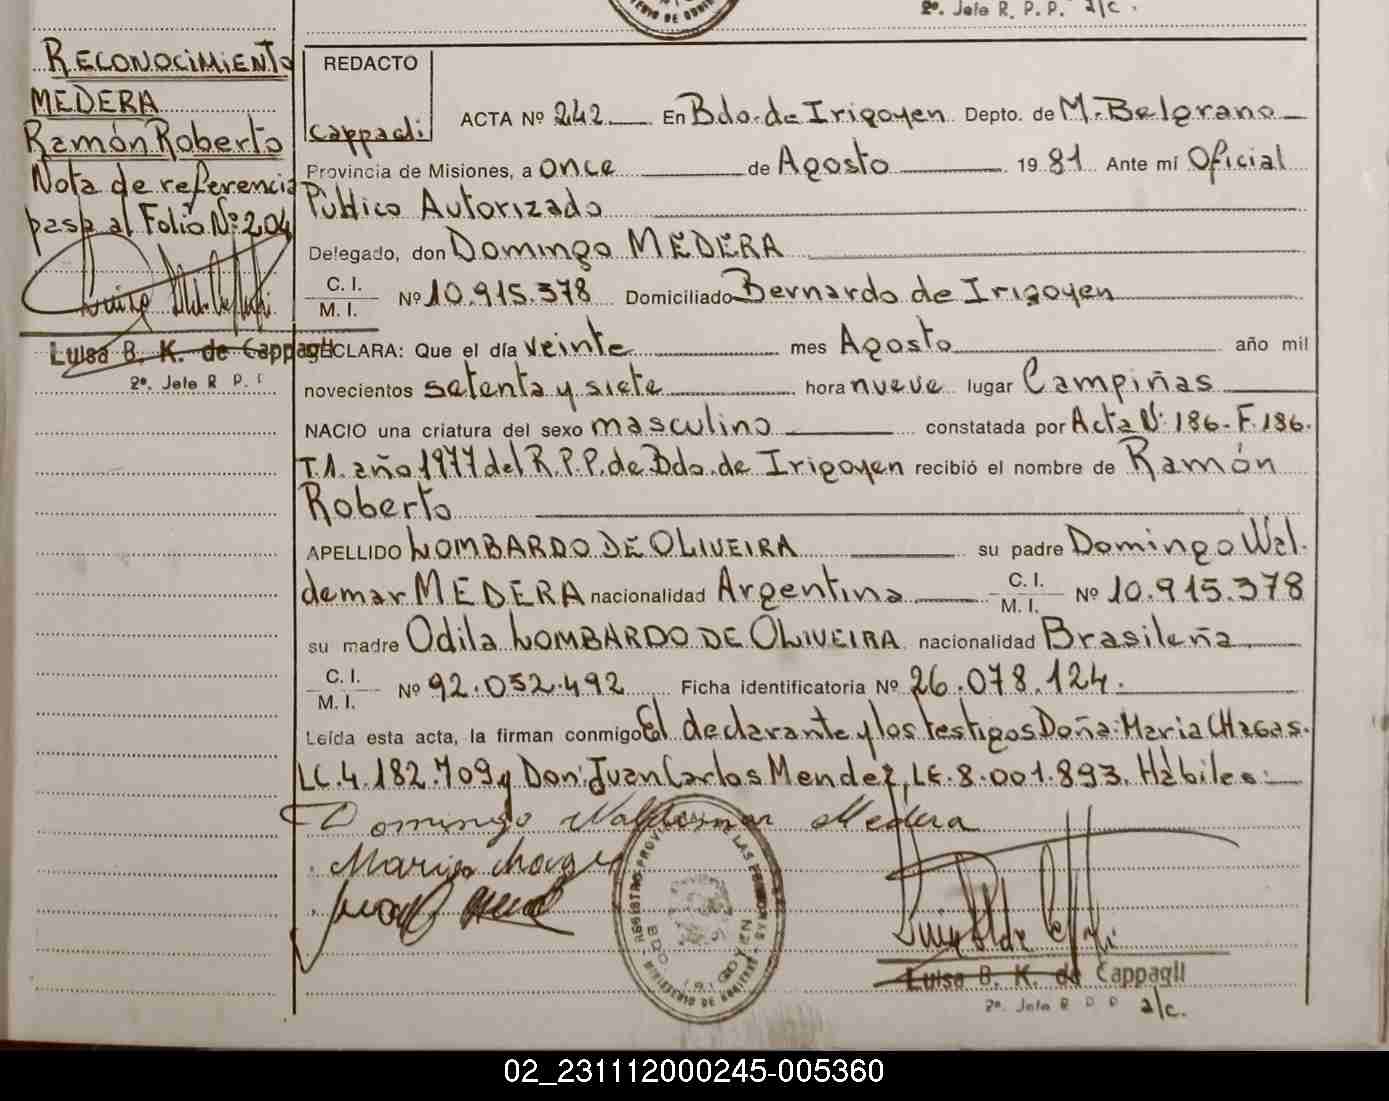 2º. Jefe R. P. P. a/c.
RECONOCIMIENTO
MEDERA
Ramón Roberto
Nota de referencia
pasa al Folio Nº 204
Luisa B. K. de Cappagli
2º. Jefe R. P. P.
REDACTO
Cappagli
ACTA Nº 242 En Bdo. de Irigoyen Depto. de M. Belgrano
Provincia de Misiones, a once de Agosto 19 81 Ante mí Oficial
Público Autorizado
Delegado, don Domingo MEDERA
C. I.
M. I. Nº 10.915.378 Domiciliado Bernardo de Irigoyen
DECLARA: Que el día veinte mes Agosto año mil
novecientos setenta y siete hora nueve lugar Campiñas
NACIO una criatura del sexo masculino constatada por Acta Nº 186-F.186.
T.1. año 1977 del R.P.P. de Bdo. de Irigoyen recibió el nombre de Ramón
Roberto
APELLIDO LOMBARDO DE OLIVEIRA su padre Domingo Wal-
demar MEDERA nacionalidad Argentina C. I. M. I. Nº 10.915.378
su madre Odila LOMBARDO DE OLIVEIRA nacionalidad Brasileña
C. I.
M. I. Nº 92.052.492 Ficha identificatoria Nº 26.078.124.
Leída esta acta, la firman conmigo El declarante y los testigos Doña: Maria CHAGAS.
LC.4.182.709 y Don: Juan Carlos Mendez, LE.8.001.893. Hàbiles:
Domingo Valdemar Medera
Luisa B. K. de Cappagli
2º. Jefe R. P. P. a/c.
02_231112000245-005360